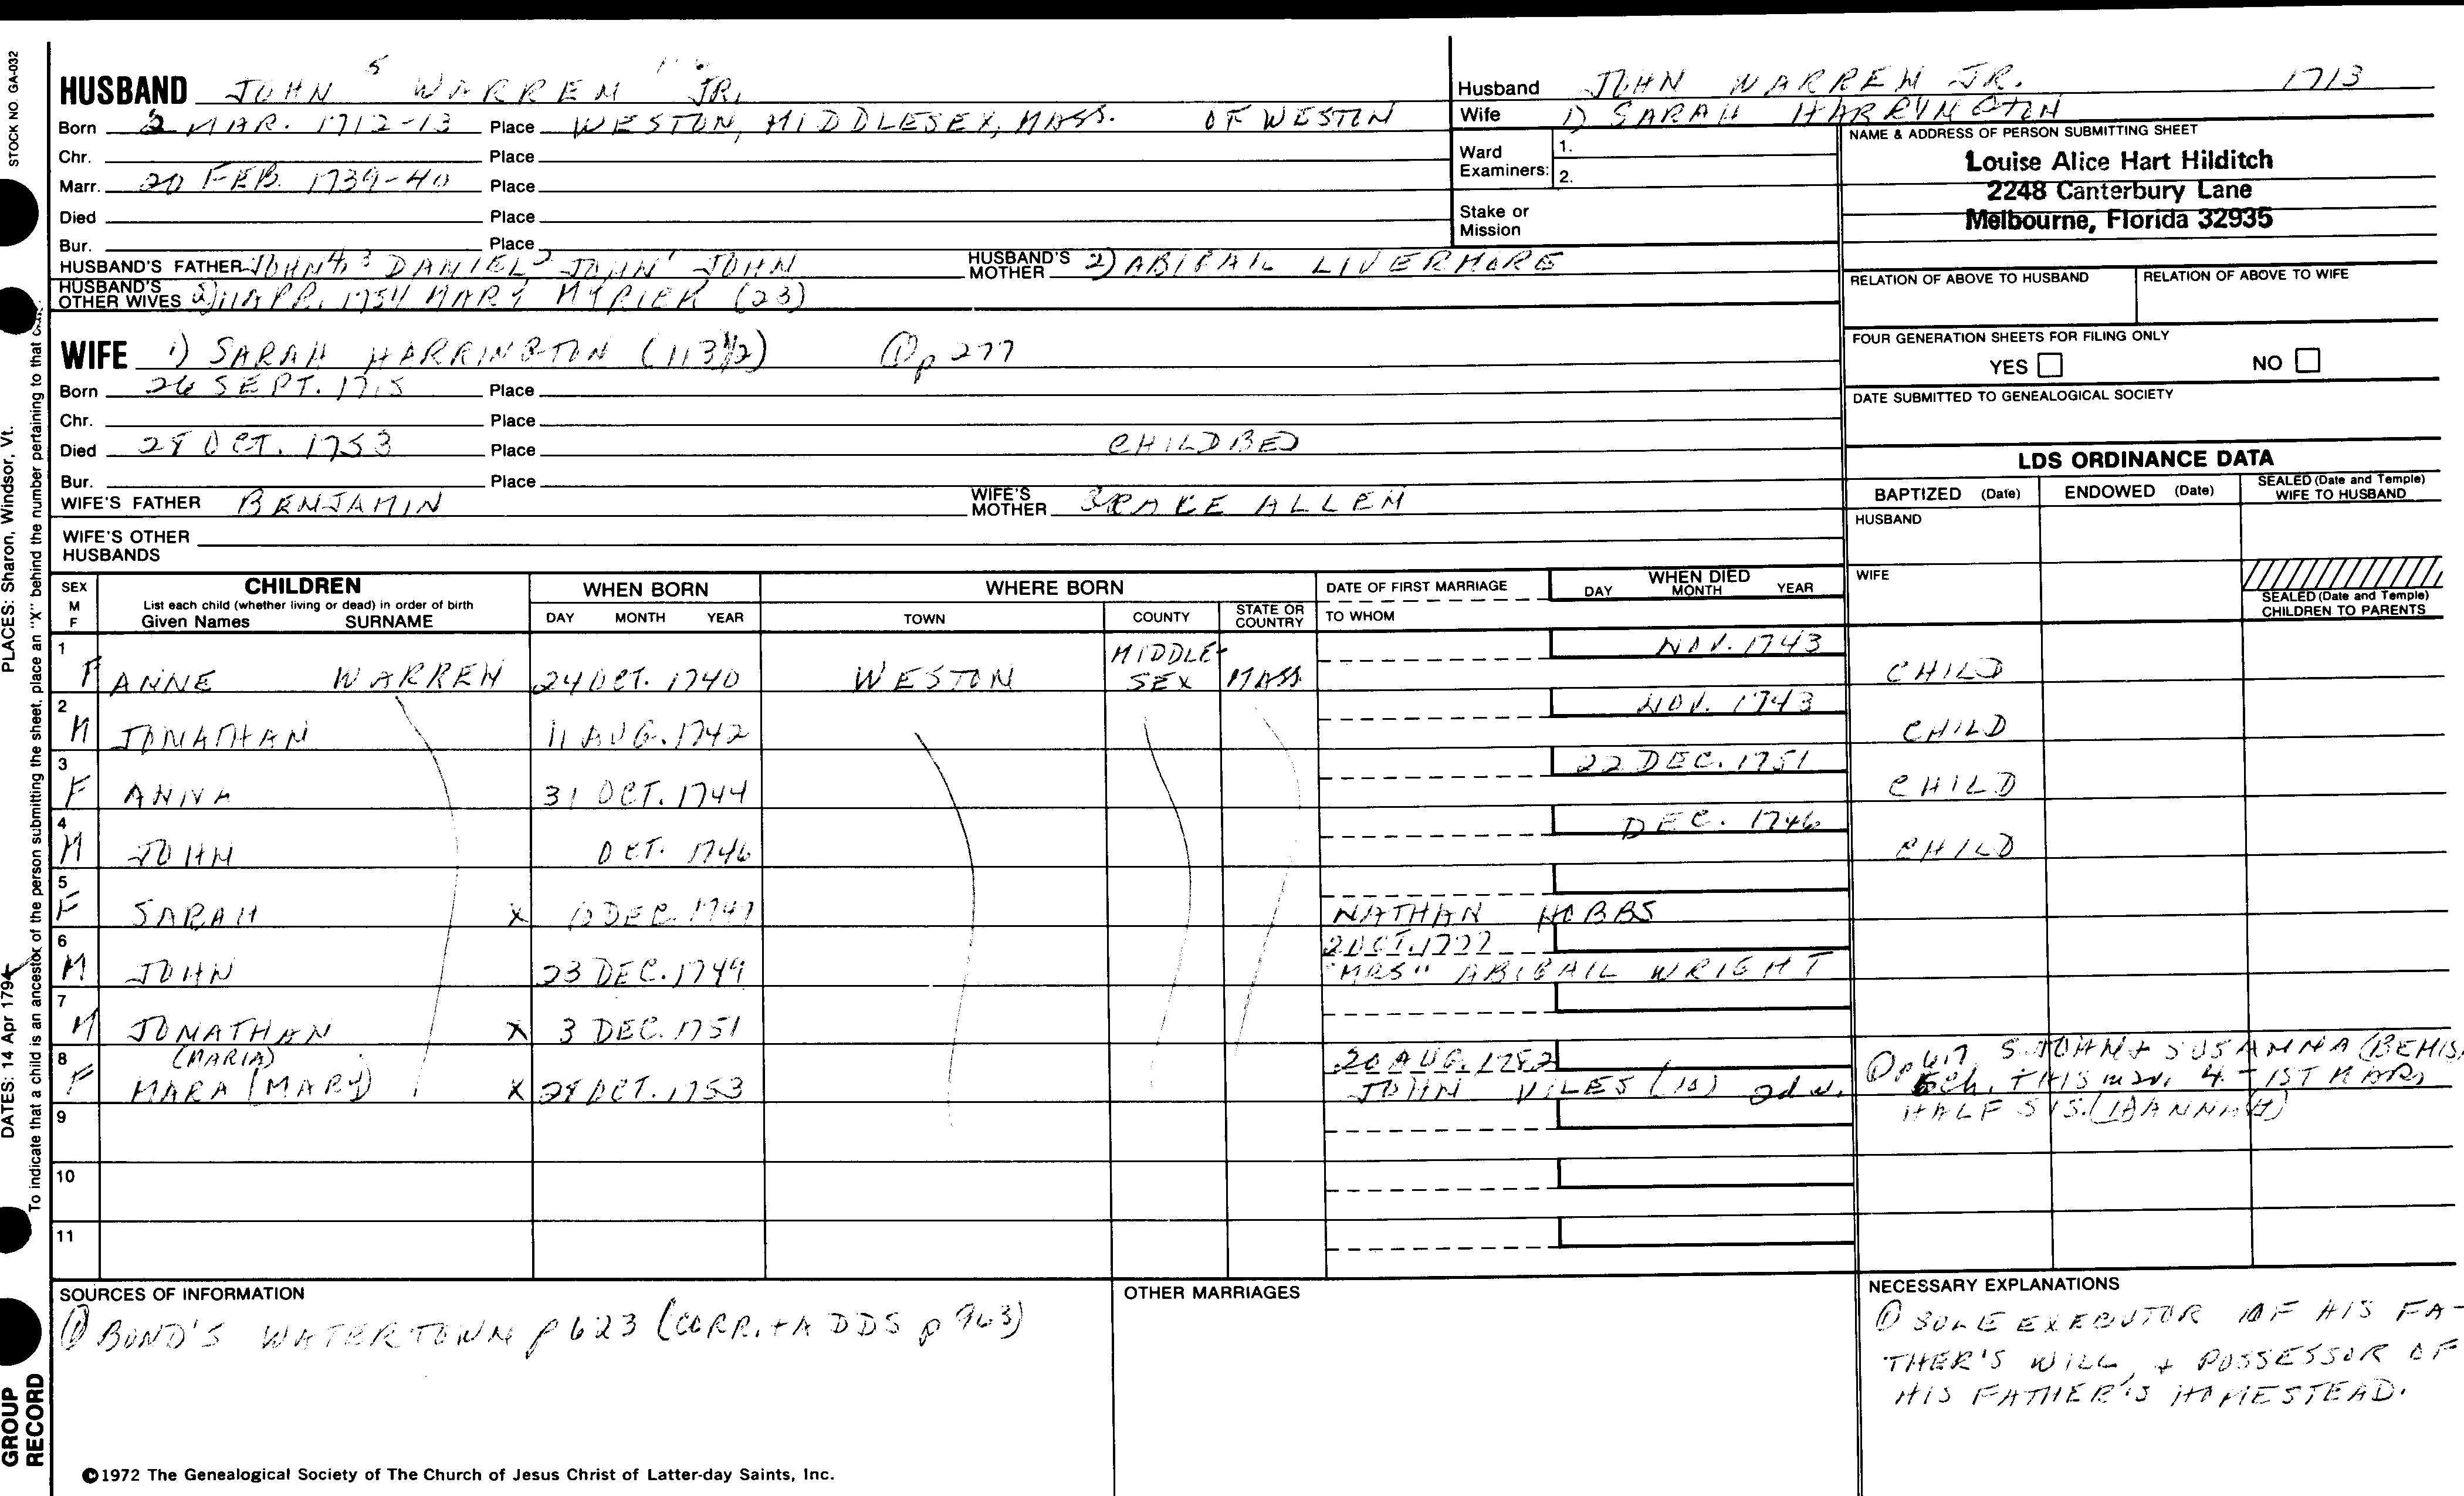 STOCK NO. GA-032
PLACES: Sharon, Windsor, Vt.
DATES: 14 Apr 1794
To indicate that a child is an ancestor of the person submitting the sheet, place an "X" behind the number pertaining to that
GROUP RECORD
HUSBAND JOHN 5 WARREN JR.
Born 2 MAR. 1712-13 Place WESTON, MIDDLESEX, MASS. OF WESTON
Chr. Place
Marr. 20 FEB. 1739-40 Place
Died Place
Bur. Place
HUSBAND'S FATHER JOHN 4, 3 DANIEL 2 JOHN 1 JOHN HUSBAND'S MOTHER 2) ABIGAIL LIVERMORE
HUSBAND'S OTHER WIVES 2) 11 APR. 1754 MARY MYRICK (23)
WIFE 1) SARAH HARRINGTON (113 1/2) ① p 277
Born 26 SEPT. 1715 Place
Chr. Place
Died 28 OCT. 1753 Place CHILDBED
Bur. Place
WIFE'S FATHER BENJAMIN WIFE'S MOTHER GRACE ALLEN
WIFE'S OTHER HUSBANDS
Husband JOHN WARREN JR. 1713
Wife 1) SARAH HARRINGTON
Ward Examiners: 1.
2.
Stake or Mission
NAME & ADDRESS OF PERSON SUBMITTING SHEET
Louise Alice Hart Hilditch
2248 Canterbury Lane
Melbourne, Florida 32935
RELATION OF ABOVE TO HUSBAND RELATION OF ABOVE TO WIFE
FOUR GENERATION SHEETS FOR FILING ONLY
YES NO
DATE SUBMITTED TO GENEALOGICAL SOCIETY
LDS ORDINANCE DATA
BAPTIZED (Date) ENDOWED (Date) SEALED (Date and Temple) WIFE TO HUSBAND
HUSBAND
WIFE
SEALED (Date and Temple) CHILDREN TO PARENTS
SEX M F CHILDREN List each child (whether living or dead) in order of birth Given Names SURNAME WHEN BORN DAY MONTH YEAR WHERE BORN TOWN COUNTY STATE OR COUNTRY DATE OF FIRST MARRIAGE TO WHOM WHEN DIED DAY MONTH YEAR
1 F ANNE WARREN 24 OCT. 1740 WESTON MIDDLESEX MASS. NOV. 1743 CHILD
2 M JONATHAN 11 AUG. 1742 NOV. 1743 CHILD
3 F ANNA 31 OCT. 1744 22 DEC. 1751 CHILD
4 M JOHN OCT. 1746 DEC. 1746 CHILD
5 F SARAH X 10 DEC. 1747 NATHAN HOBBS
6 M JOHN 23 DEC. 1749 2 OCT. 1777 "MRS" ABIGAIL WRIGHT
7 M JONATHAN X 3 DEC. 1751
8 F (MARIA) MARA (MARY) X 28 OCT. 1753 20 AUG. 1782 JOHN VILES (10) 2d w. ① p 617 S. JOHN + SUSANNA (BEMIS)
6 ch. THIS MAR. 4 - 1ST MAR.
HALF SIS. (HANNAH)
9
10
11
SOURCES OF INFORMATION
① BOND'S WATERTOWN p 623 (CORR. + ADDS p 963)
OTHER MARRIAGES
NECESSARY EXPLANATIONS
① SOLE EXECUTOR OF HIS FA-
THER'S WILL, + POSSESSOR OF
HIS FATHER'S HOMESTEAD.
©1972 The Genealogical Society of The Church of Jesus Christ of Latter-day Saints, Inc.